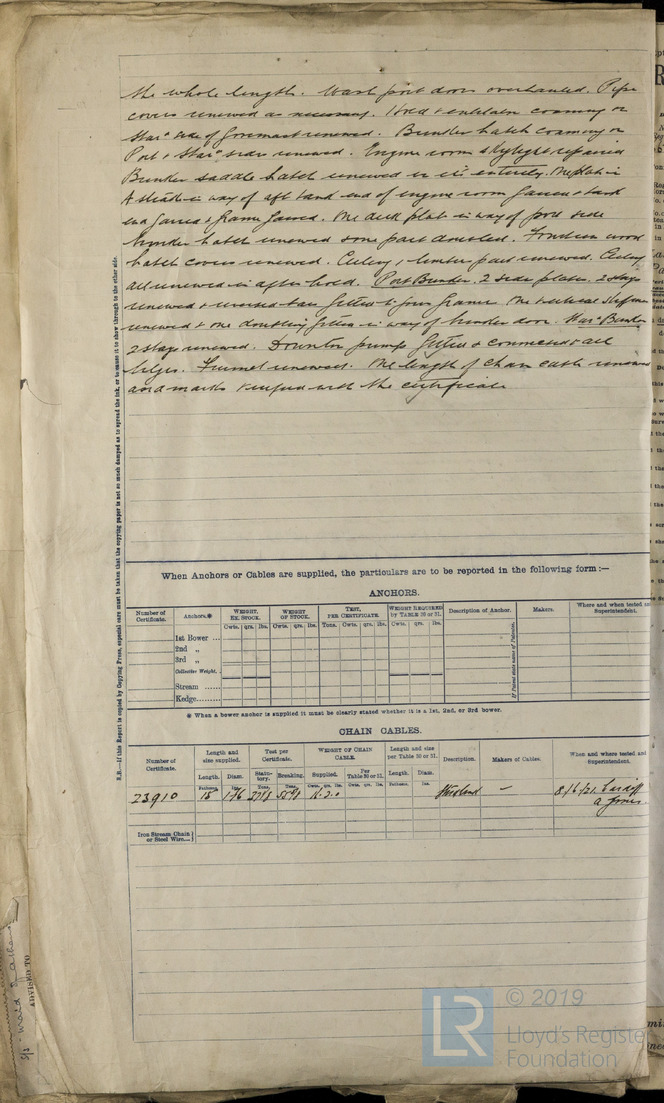 the whole length. Wash port doors overhauled. Pipe
covers renewed as necessary. Hold & entablature coaming on
Star^d side of foremast renewed. Bunker hatch coaming on
Port & Star^d sides renewed. Engine room skylight repaired
Bunker saddle hatch renewed in it's entirety. One plate in
A strake in way of aft tank end of engine room faired & tank
end faired & frame faired. One deck plate in way of port side
bunker hatch renewed some part doubled. Fourteen wood
hatch covers renewed. Ceiling & limbers part renewed. Ceiling
all renewed in after hold. Port Bunker, 2 side plates, 2 stays
renewed & reversed bars fitted to four frames. One vertical stiffener
renewed & one doubling fitted in way of bunker door. Star^d Bunker
2 stays renewed. Downton pumps fitted & connected to all
bilges. Funnel renewed. One length of chain cable renewed
and marks verified with the certificate
N.B.—If this Report is copied by Copying Press, especial care must be taken that the copying paper is not so much damped as to spread the ink, or to cause it to show through to the other side.
When Anchors or Cables are supplied, the particulars are to be reported in the following form :—
ANCHORS.
Number of Certificate. Anchors.* WEIGHT, EX. STOCK. WEIGHT OF STOCK. TEST, PER CERTIFICATE. WEIGHT REQUIRED by TABLE 30 or 31. Description of Anchor. Makers. Where and when tested Superintendent.
Cwts. qrs. lbs. Cwts. qrs. lbs. Tons. Cwts. qrs. lbs. Cwts. qrs. lbs.
1st Bower ...
2nd „
3rd „
Collective Weight.
Stream ......
Kedge.........
If Patent state name of Patentee.
* When a bower anchor is supplied it must be clearly stated whether it is a 1st, 2nd, or 3rd bower.
CHAIN CABLES.
Number of Certificate. Length and size supplied. Test per Certificate. WEIGHT OF CHAIN CABLE. Length and size per Table 30 or 31. Description. Makers of Cables. When and where tested and Superintendent.
Length. Diam. Statutory. Breaking. Supplied. Per Table 30 or 31. Length. Diam.
Fathoms. Ins. Tons. Tons. Cwts. qrs. lbs. Cwts. qrs. lbs. Fathoms. Ins.
23910 15 Studland — 8/6/21. Cardiff
A Jones.
Iron Stream Chain or Steel Wire...
S/S "Maid of Athens"
ADVISED TO
LR
© 2019
Lloyd's Register
Foundation